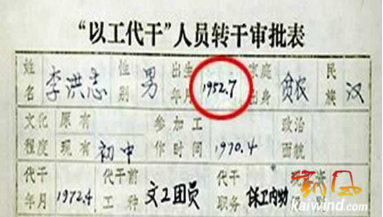 “以工代干”人员转干审批表
姓名 李洪志 性别 男 出生年月 1952.7 家庭出身 贫农 民族 汉
文化程度 原有 现有 初中 参加工作时间 1970.4 政治面貌
代干年月 1972.4 代干前工种 文工团员 代干职务 保卫内勤
凯风
kaiwind.com